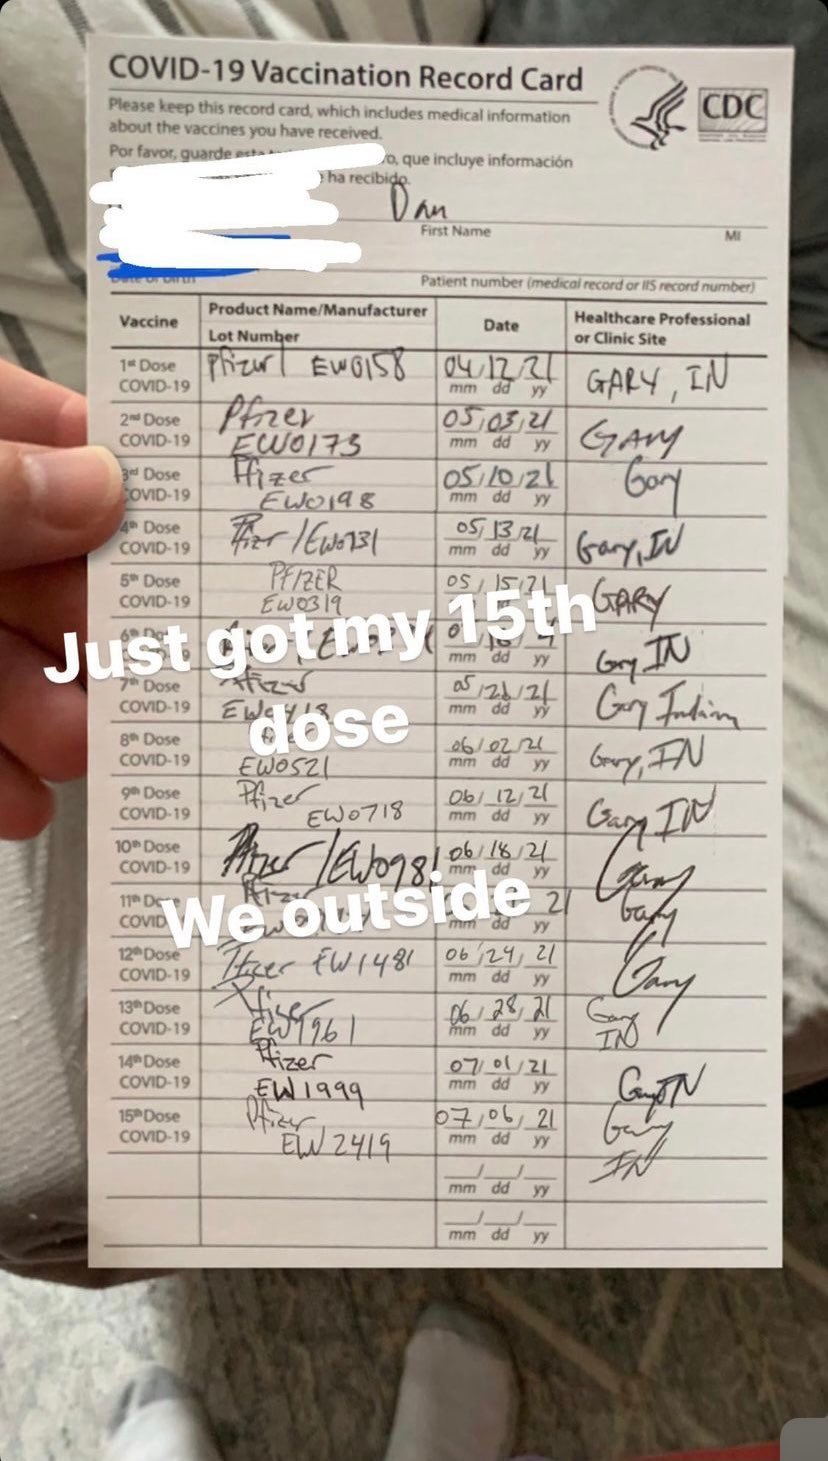 COVID-19 Vaccination Record Card
CDC
Please keep this record card, which includes medical information
about the vaccines you have received.
Por favor, guarde esta ro, que incluye información
ha recibido.
Dan
First Name MI
Date of birth Patient number (medical record or IIS record number)
Vaccine Product Name/Manufacturer Date Healthcare Professional
Lot Number or Clinic Site
1st Dose Pfizer EW0158 04/12/21 GARY, IN
COVID-19 mm dd yy
2nd Dose Pfizer 05/03/21 GARY
COVID-19 EW0173 mm dd yy
3rd Dose Pfizer 05/10/21 Gary
COVID-19 EW0198 mm dd yy
4th Dose Pfizer/EW0731 05/13/21 Gary, IN
COVID-19 mm dd yy
5th Dose PFIZER 05/15/21 GARY
COVID-19 EW0319
Just got my 15th
dose
mm dd yy Gary IN
7th Dose Pfizer 05/21/21 Gary Indiana
COVID-19 mm dd yy
8th Dose 06/02/21 Gary, IN
COVID-19 EW0521 mm dd yy
9th Dose Pfizer 06/12/21 Gary IN
COVID-19 EW0718 mm dd yy
10th Dose Pfizer/EW0981 06/18/21 Gary
COVID-19 mm dd yy
11th Dose Pfizer 21 Gary
COVID mm dd yy
We outside
12th Dose Pfizer EW1481 06/24/21 Gary
COVID-19 mm dd yy
13th Dose Pfizer 06/28/21 Gary
COVID-19 EW1961 mm dd yy IN
14th Dose Pfizer 07/01/21 Gary IN
COVID-19 EW1999 mm dd yy
15th Dose Pfizer 07/06/21 Gary
COVID-19 EW2419 mm dd yy IN
mm dd yy
mm dd yy